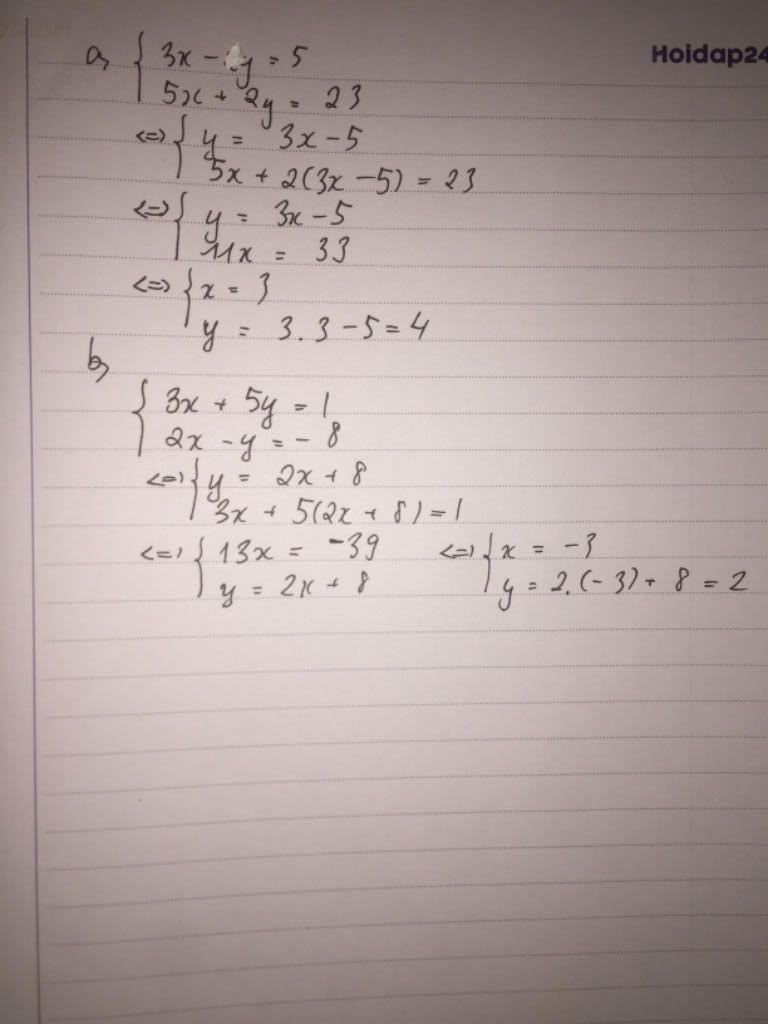 Hoidap24
a, { 3x - y = 5
5x + 2y = 23
<=> { y = 3x - 5
5x + 2(3x - 5) = 23
<=> { y = 3x - 5
11x = 33
<=> { x = 3
y = 3.3 - 5 = 4
b,
{ 3x + 5y = 1
2x - y = - 8
<=> { y = 2x + 8
3x + 5(2x + 8) = 1
<=> { 13x = -39
y = 2x + 8
<=> { x = -3
y = 2.(-3) + 8 = 2